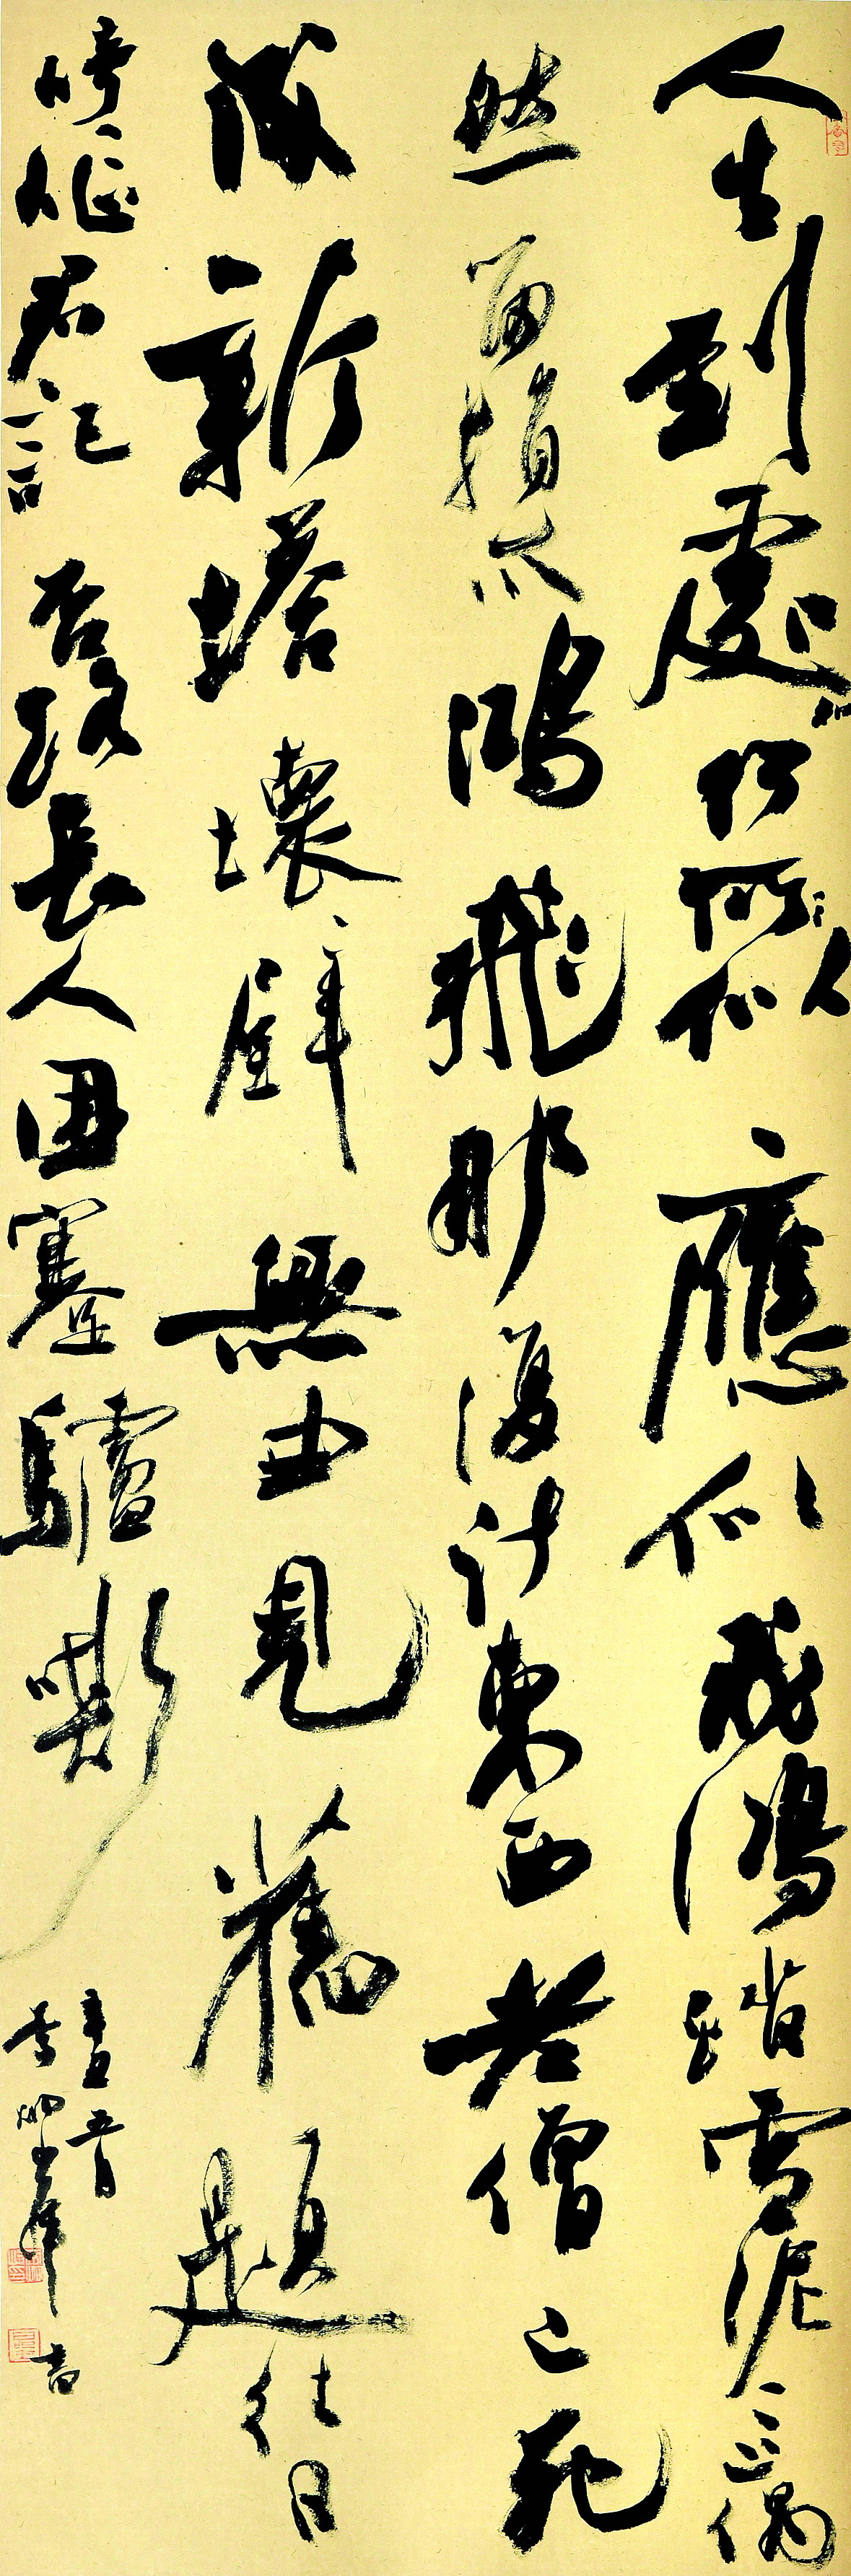 人生到處何所似應似飛鴻踏雪泥〻上偶
然留指爪鴻飛那復計東西老僧已死
成新塔壞壁無由見舊題往日
崎嶇君記否路長人困蹇驢嘶